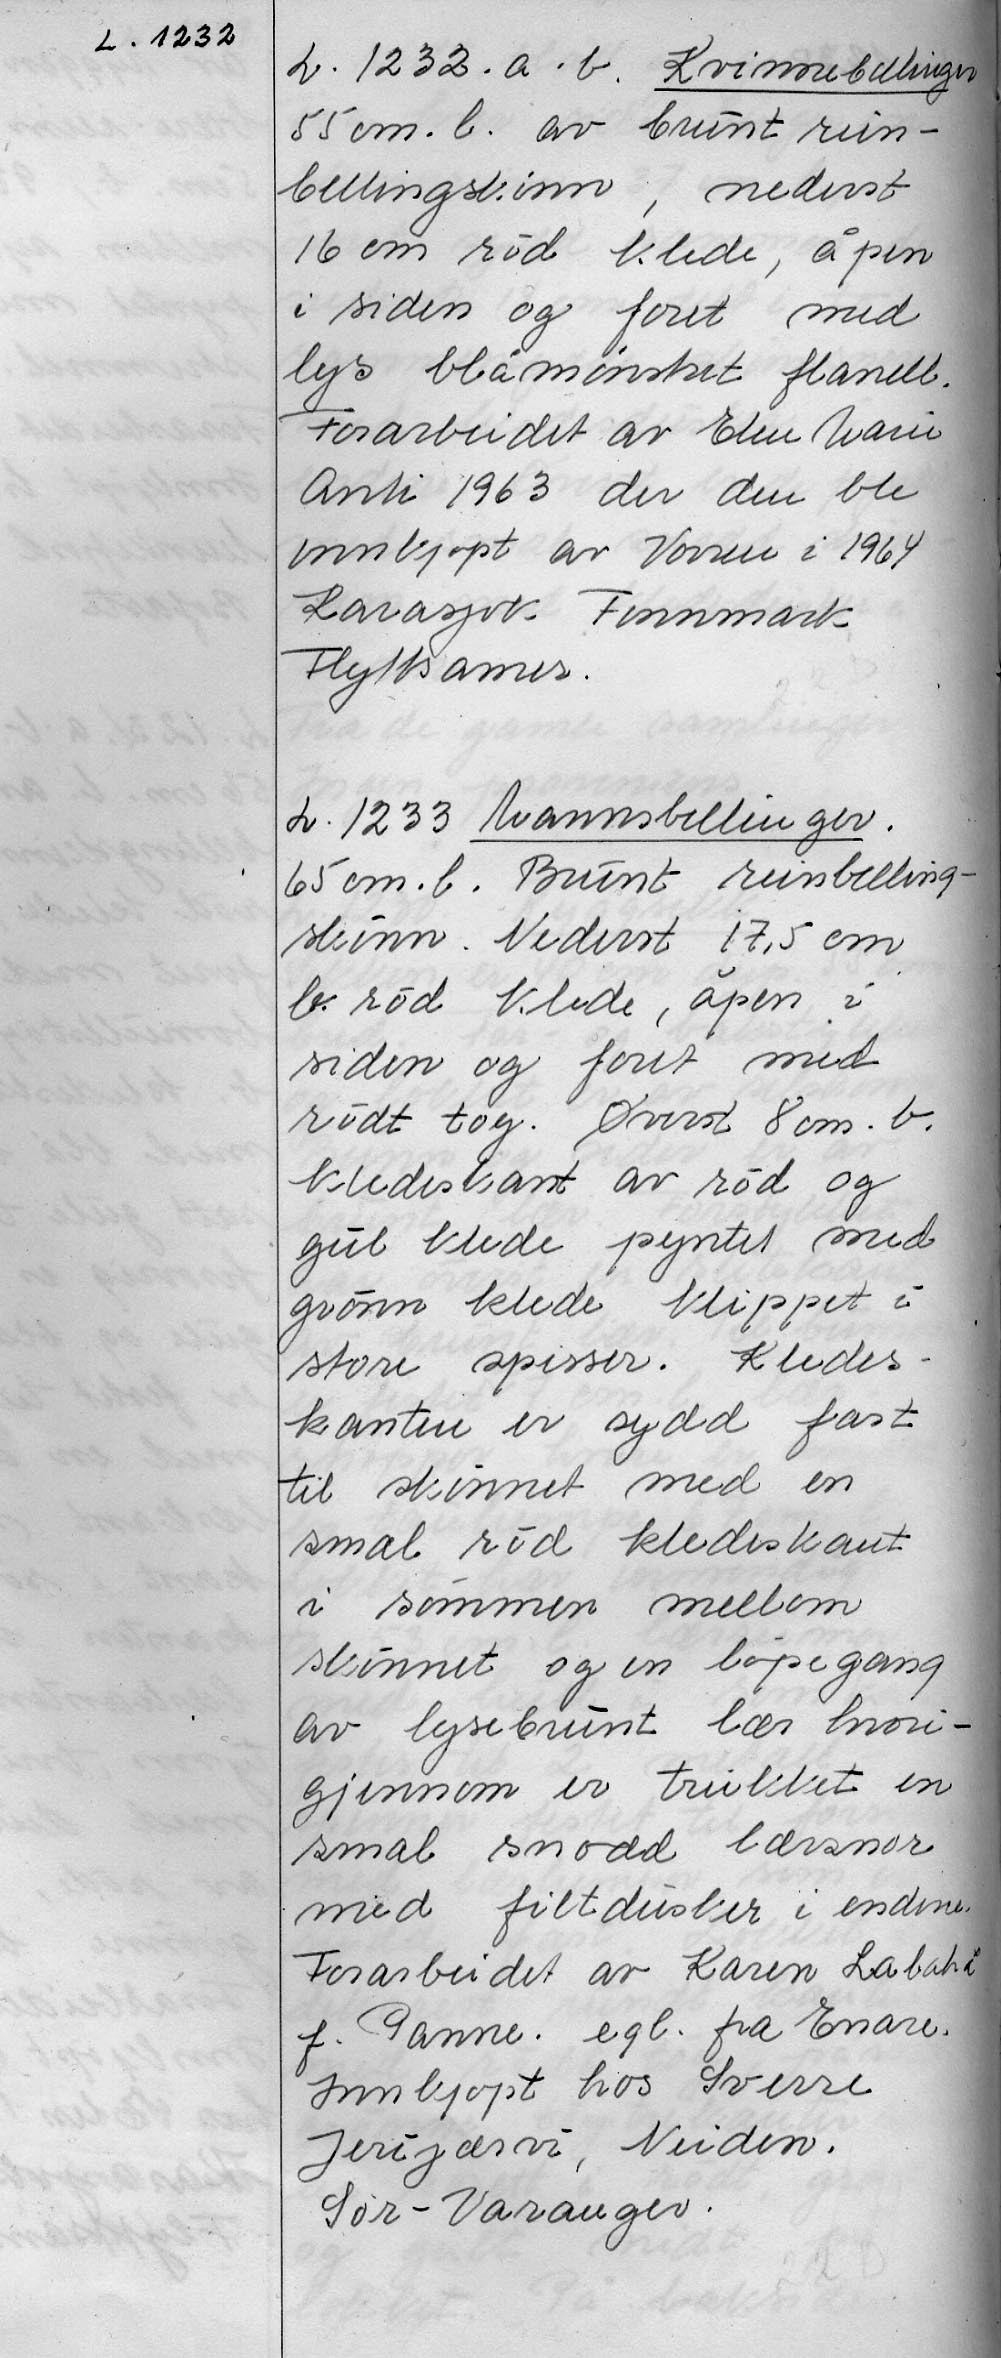 L. 1232
L. 1232. a. b. Kvinnebellinger
55 cm. l. av brunt rein-
bellingskinn, nederst
16 cm röd klede, åpen
i siden og foret med
lys blåmönstret flanell.
Forarbeidet av Elen Marie
Anti 1963 der den ble
innkjöpt av Vorren i 1964
Karasjok Finnmark
Flyttsamer.
L. 1233 Mannsbellinger.
65 cm. l. Brunt reinsbelling-
skinn. Nederst 17,5 cm
b. röd klede, åpen i
siden og foret med
rödt töy. Øverst 8 cm. b.
kledeskant av röd og
gul klede pyntet med
grönn klede klippet i
store spisser. Kledes-
kanten er sydd fast
til skinnet med en
smal röd kledeskant
i sömmen mellom
skinnet og en löpegang
av lysebrunt lær hvori-
gjennom er trukket en
smal snodd lærsnor
med filtdusker i endene.
Forarbeidet av Karen Labahå
f. Panne. egl. fra Enare.
Innkjöpt hos Sverre
Jerijærvi, Neiden.
Sör-Varanger.